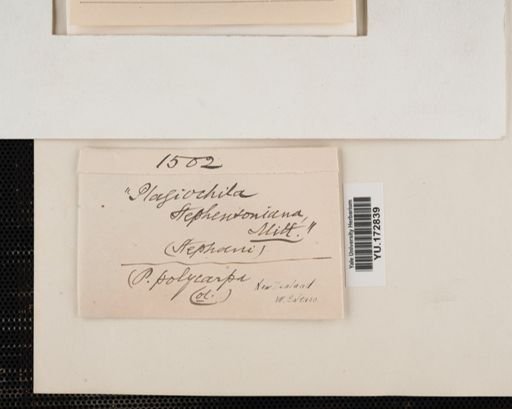 1502
"Plagiochila
Stephensoniana,
Mitt."
(Stephani)
(P. polycarpa
(ol.)
New Zealand
Yale University Herbarium
YU.172839